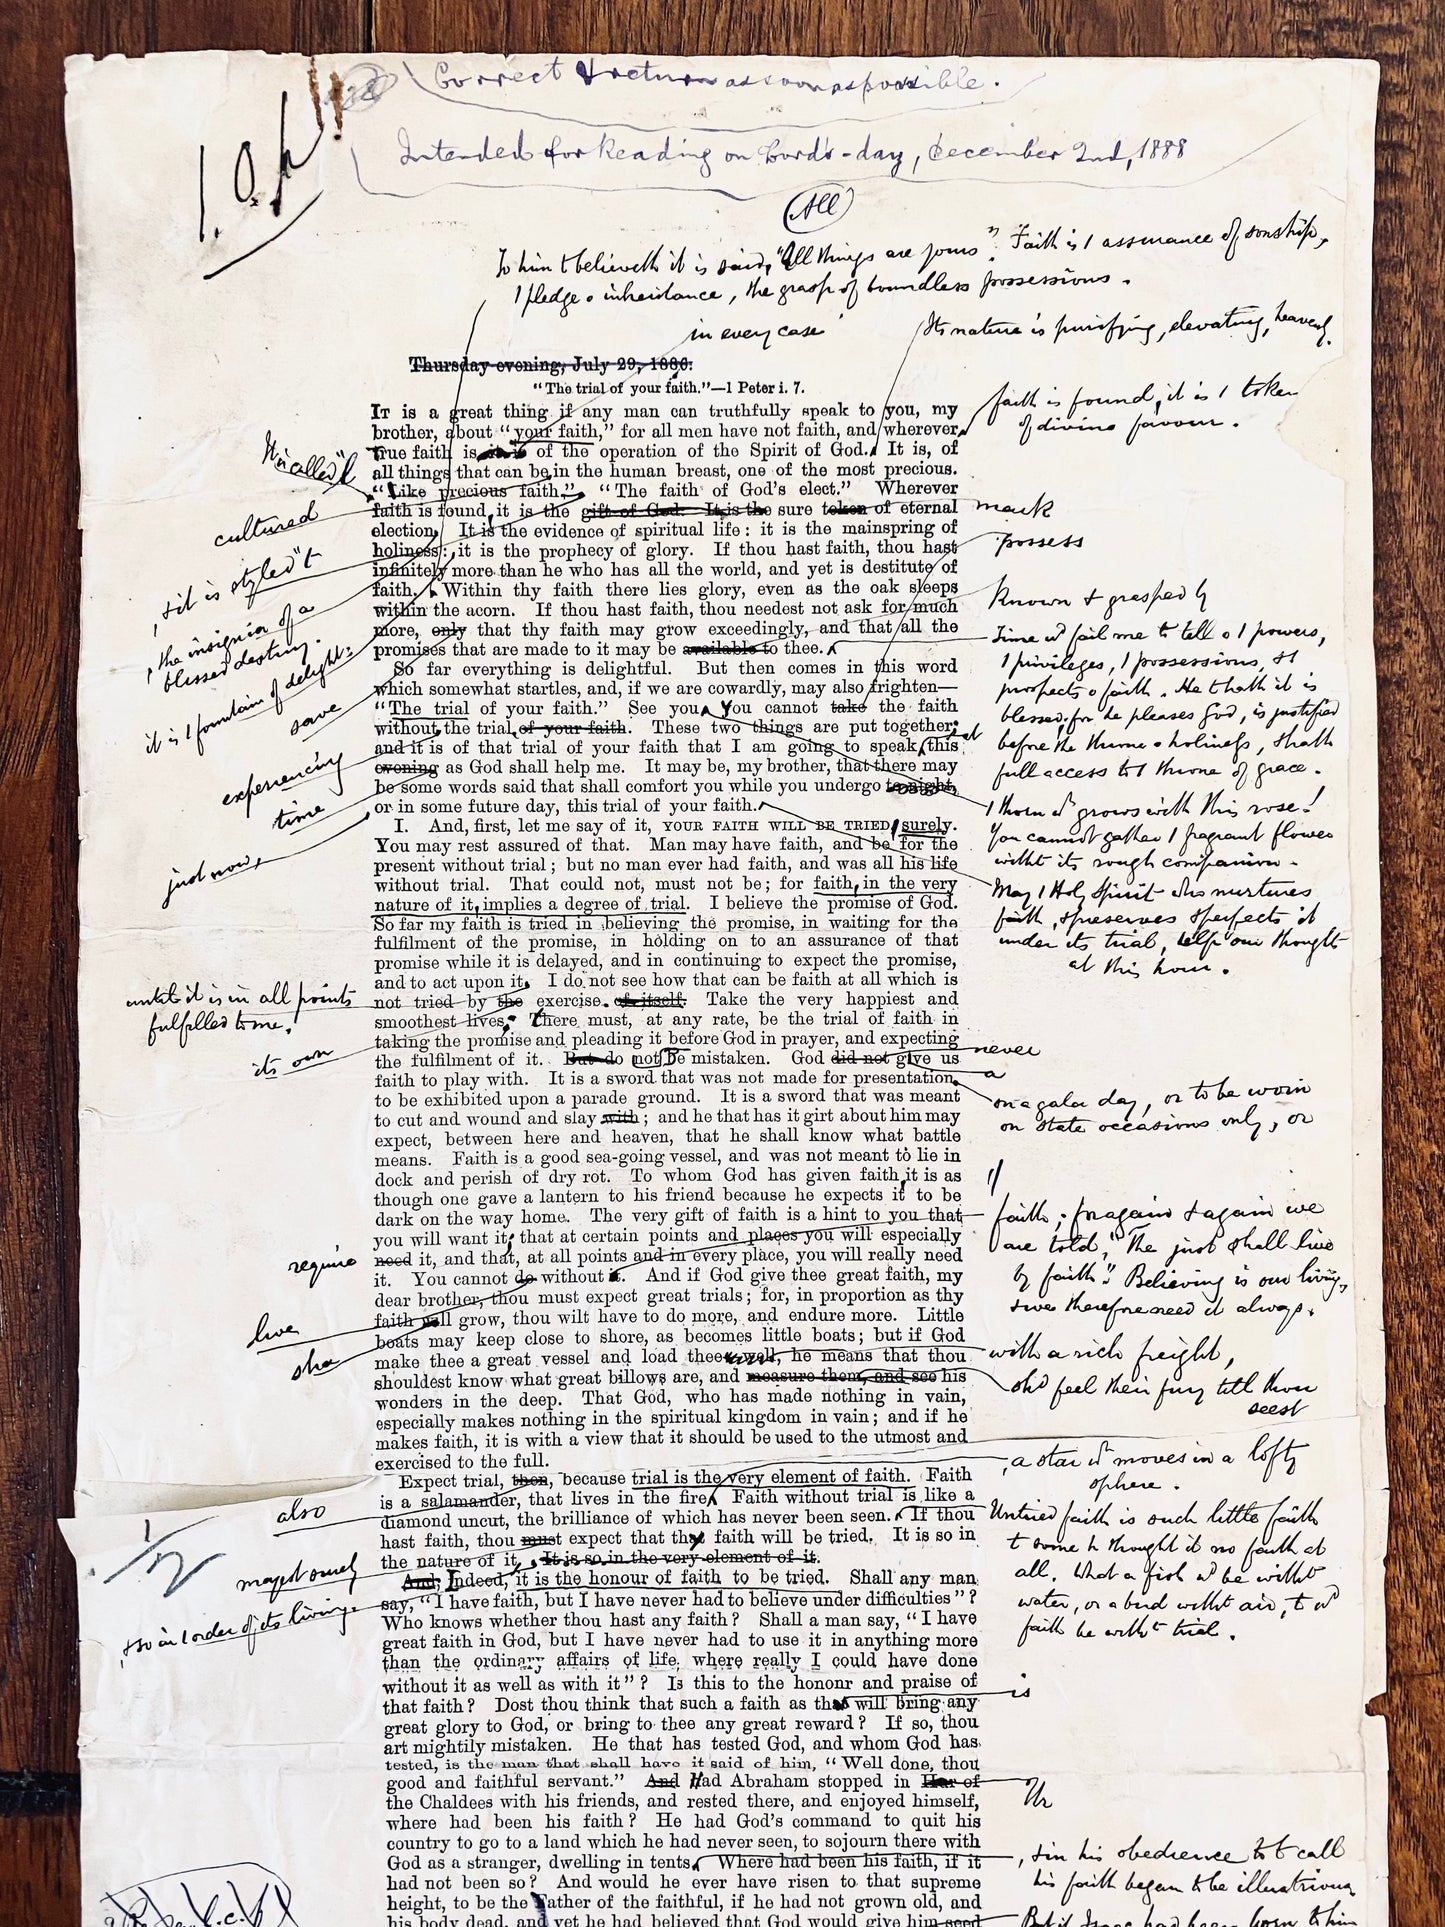 Correct & return as soon as possible.
Intended for Reading on Lord's-day, December 2nd, 1888
All
To him t believeth it is said, "All things are yours". Faith is 1 assurance of sonship,
1 pledge o inheritance, the grasp of boundless possessions.
in every case
Its nature is purifying, elevating, heavenly.
Thursday evening, July 29, 1880.
"The trial of your faith."—1 Peter i. 7.
IT is a great thing if any man can truthfully speak to you, my
brother, about "your faith," for all men have not faith, and wherever
true faith is it is of the operation of the Spirit of God. It is, of
all things that can be in the human breast, one of the most precious.
"Like precious faith." "The faith of God's elect." Wherever
faith is found, it is the gift of God. It is the sure token of eternal
election. It is the evidence of spiritual life: it is the mainspring of
holiness: it is the prophecy of glory. If thou hast faith, thou hast
infinitely more than he who has all the world, and yet is destitute of
faith. Within thy faith there lies glory, even as the oak sleeps
within the acorn. If thou hast faith, thou needest not ask for much
more, only that thy faith may grow exceedingly, and that all the
promises that are made to it may be available to thee.
So far everything is delightful. But then comes in this word
which somewhat startles, and, if we are cowardly, may also frighten—
"The trial of your faith." See you, You cannot take the faith
without the trial of your faith. These two things are put together;
and it is of that trial of your faith that I am going to speak this
evening as God shall help me. It may be, my brother, that there may
be some words said that shall comfort you while you undergo to-night,
or in some future day, this trial of your faith.
I. And, first, let me say of it, YOUR FAITH WILL BE TRIED surely.
You may rest assured of that. Man may have faith, and be for the
present without trial; but no man ever had faith, and was all his life
without trial. That could not, must not be; for faith, in the very
nature of it, implies a degree of trial. I believe the promise of God.
So far my faith is tried in believing the promise, in waiting for the
fulfilment of the promise, in holding on to an assurance of that
promise while it is delayed, and in continuing to expect the promise,
and to act upon it. I do not see how that can be faith at all which is
not tried by the exercise of itself. Take the very happiest and
smoothest lives; There must, at any rate, be the trial of faith in
taking the promise and pleading it before God in prayer, and expecting
the fulfilment of it. But do not be mistaken. God did not give us
faith to play with. It is a sword that was not made for presentation
to be exhibited upon a parade ground. It is a sword that was meant
to cut and wound and slay with; and he that has it girt about him may
expect, between here and heaven, that he shall know what battle
means. Faith is a good sea-going vessel, and was not meant to lie in
dock and perish of dry rot. To whom God has given faith, it is as
though one gave a lantern to his friend because he expects it to be
dark on the way home. The very gift of faith is a hint to you that
you will want it; that at certain points and places you will especially
need it, and that, at all points and in every place, you will really need
it. You cannot do without it. And if God give thee great faith, my
dear brother, thou must expect great trials; for, in proportion as thy
faith will grow, thou wilt have to do more, and endure more. Little
boats may keep close to shore, as becomes little boats; but if God
make thee a great vessel and load thee well, he means that thou
shouldest know what great billows are, and measure them, and see his
wonders in the deep. That God, who has made nothing in vain,
especially makes nothing in the spiritual kingdom in vain; and if he
makes faith, it is with a view that it should be used to the utmost and
exercised to the full.
Expect trial, then, because trial is the very element of faith. Faith
is a salamander, that lives in the fire. Faith without trial is like a
diamond uncut, the brilliance of which has never been seen. If thou
hast faith, thou must expect that thy faith will be tried. It is so in
the nature of it. It is so in the very element of it.
And, Indeed, it is the honour of faith to be tried. Shall any man
say, "I have faith, but I have never had to believe under difficulties"?
Who knows whether thou hast any faith? Shall a man say, "I have
great faith in God, but I have never had to use it in anything more
than the ordinary affairs of life, where really I could have done
without it as well as with it"? Is this to the honour and praise of
that faith? Dost thou think that such a faith as that will bring any
great glory to God, or bring to thee any great reward? If so, thou
art mightily mistaken. He that has tested God, and whom God has
tested, is the man that shall have it said of him, "Well done, thou
good and faithful servant." And Had Abraham stopped in Har of
the Chaldees with his friends, and rested there, and enjoyed himself,
where had been his faith? He had God's command to quit his
country to go to a land which he had never seen, to sojourn there with
God as a stranger, dwelling in tents. Where had been his faith, if it
had not been so? And would he ever have risen to that supreme
height, to be the Father of the faithful, if he had not grown old, and
his body dead, and yet he had believed that God would give him seed
It is called "
cultured
, & it is styled "t
, the insignia of a
blessed destiny.
it is 1 fountain of delight:
save
experiencing
time
just now,
until it is in all points
fulfilled to me.
its own
require
live
sha
also
1/2
mayest surely
, & so in 1 order of its living.
faith is found, it is 1 token
of divine favour.
mark
possess
Known & grasped by
Time wd fail me to tell o 1 powers,
1 privileges, 1 possessions, & 1
prospects o faith. He t hath it is
blessed, for he pleases God, is justified
before the throne o holiness, & hath
full access to 1 throne of grace.
1 thorn wh grows with this rose!
You cannot gather 1 fragrant flower
witht its rough companion.
May 1 Holy Spirit who nurtures
faith, & preserves & perfects it
under its trial, help our thought
at this hour.
never
a
on a gala day, or to be worn
on state occasions only, or
faith; for again & again we
are told, "The just shall live
by faith". Believing is our living,
& we therefore need it always.
with a rich freight,
shd feel their fury till thou
seest
, a star wh moves in a lofty
sphere.
Untried faith is such little faith
t some h thought it no faith at
all. What a fish wd be witht
water, or a bird witht air, t wd
faith be witht trial.
is
Ur
, & in his obedience to t call
his faith began to be illustrious
But if Isaac had been born to him